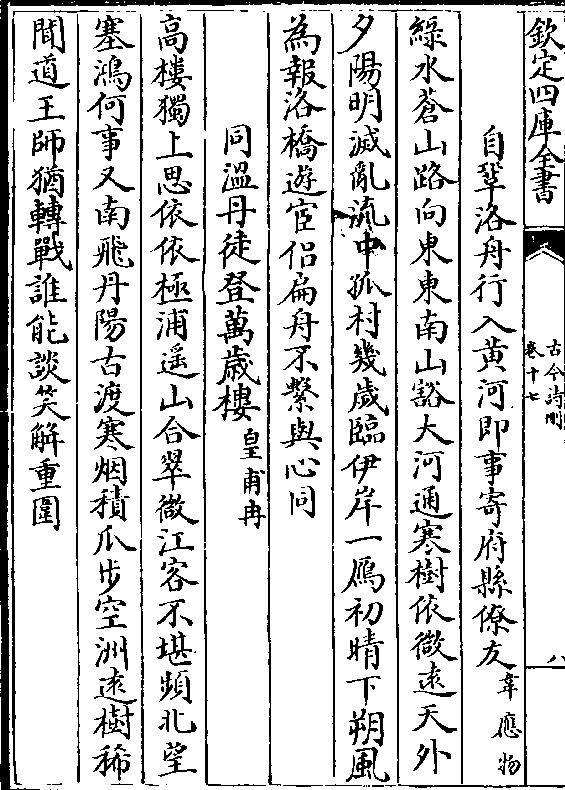 欽定四庫全書
古今詩刪
卷十七
八
自鞏洛舟行入黄河即事寄府縣僚友 韋應物
綠水蒼山路向東東南山豁大河通寒樹依微逺天外
夕陽明滅亂流中孤村幾歲臨伊岸一鴈初晴下朔風
為報洛橋遊宦侣扁舟不繫與心同
同溫丹徒登萬歲樓 皇甫冉
高樓獨上思依依極浦遥山合翠微江客不堪頻北望
塞鴻何事又南飛丹陽古渡寒烟積瓜步空洲逺樹稀
聞道王師猶轉戰誰能談笑解重圍